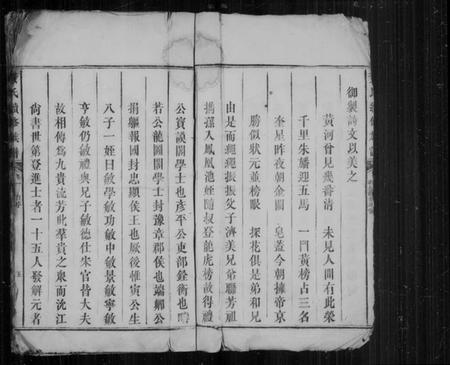 御製詩文以美之
黃河曾見幾番清　未見人間有此榮
千里朱旛迎五馬　一門黃榜占三名
奎星昨夜朝金闕　皂蓋今朝擁帝京
勝似狀元並榜眼　探花俱是弟和兄
由是而繩繩振振父子濟美兄弟聯芳祖
孫入鳳凰池姪隨叔登龍虎榜故得禮
公資議閣學士也彥平公吏部銓衡也
若公龍圖閣學士封豫章郡侯也端卿公
捐軀報國封忠順侯王也厥後惟寅公生
八子一姪曰敏學敏功敏中敏景敏寧敏
亨敏仍敏禮與兄子敏德仕宋官皆大夫
故相傳爲九貴流芳此萃貴之眾而沈江
尚書世第登進士者一十五人發解元者